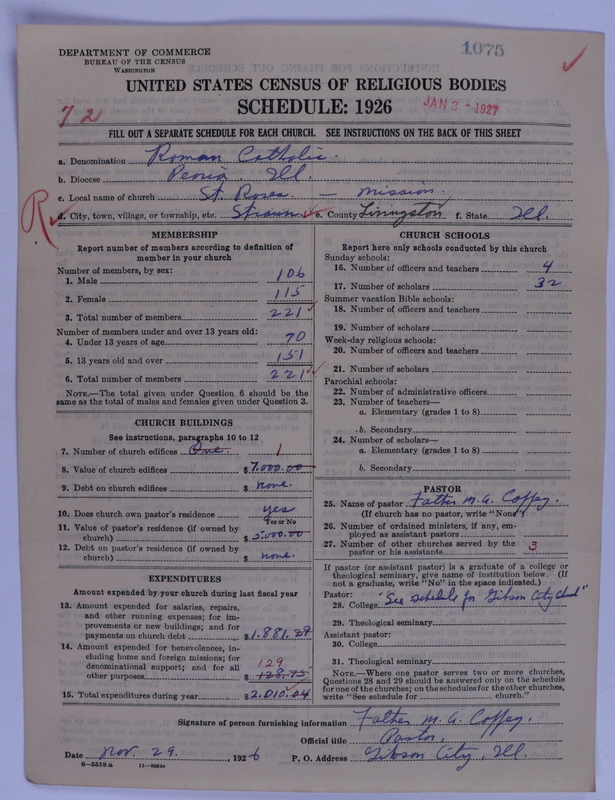 DEPARTMENT OF COMMERCE
BUREAU OF THE CENSUS
WASHINGTON
1075
UNITED STATES CENSUS OF RELIGIOUS BODIES
SCHEDULE: 1926
JAN 3 - 1927
72
FILL OUT A SEPARATE SCHEDULE FOR EACH CHURCH. SEE INSTRUCTIONS ON THE BACK OF THIS SHEET
a. Denomination Roman Catholic.
b. Diocese Peoria Ill.
c. Local name of church St. Roses — mission.
R
d. City, town, village, or township, etc. Strawn e. County Livingston f. State Ill.
MEMBERSHIP
Report number of members according to definition of
member in your church
Number of members, by sex:
1. Male 106
2. Female 115
3. Total number of members 221
Number of members under and over 13 years old:
4. Under 13 years of age 70
5. 13 years old and over 151
6. Total number of members 221
NOTE.—The total given under Question 6 should be
same as the total of males and females given under Question 3.
CHURCH BUILDINGS
See instructions, paragraphs 10 to 12
7. Number of church edifices One. 1
8. Value of church edifices $ 7,000.00
9. Debt on church edifices $ none.
10. Does church own pastor's residence yes
Yes or No
11. Value of pastor's residence (if owned by
church) $ 5,000.00
12. Debt on pastor's residence (if owned by
church) $ none.
EXPENDITURES
Amount expended by your church during last fiscal year
13. Amount expended for salaries, repairs,
and other running expenses; for im-
provements or new buildings; and for
payments on church debt $ 1,881.29
14. Amount expended for benevolences, in-
cluding home and foreign missions; for
denominational support; and for all
129
other purposes $ 128.75
15. Total expenditures during year $ 2,010.04
CHURCH SCHOOLS
Report here only schools conducted by this church
Sunday schools:
16. Number of officers and teachers 4
17. Number of scholars 32
Summer vacation Bible schools:
18. Number of officers and teachers
19. Number of scholars
Week-day religious schools:
20. Number of officers and teachers
21. Number of scholars
Parochial schools:
22. Number of administrative officers
23. Number of teachers—
a. Elementary (grades 1 to 8)
b. Secondary
24. Number of scholars—
a. Elementary (grades 1 to 8)
b. Secondary
PASTOR
25. Name of pastor Father M. A. Coffey.
(If church has no pastor, write "None")
26. Number of ordained ministers, if any, em-
ployed as assistant pastors
27. Number of other churches served by the
pastor or his assistants 3
If pastor (or assistant pastor) is a graduate of a college or
theological seminary, give name of institution below. (If
not a graduate, write "No" in the space indicated.)
Pastor: "See schedule for Gibson City Church"
28. College
29. Theological seminary
Assistant pastor:
30. College
31. Theological seminary
NOTE.—Where one pastor serves two or more churches,
Questions 28 and 29 should be answered only on the schedule
for one of the churches; on the schedules for the other churches,
write "See schedule for church."
Signature of person furnishing information Father M. A. Coffey.
Official title Pastor.
Date Nov. 29, 1926 P. O. Address Gibson City, Ill.
8—5518 a